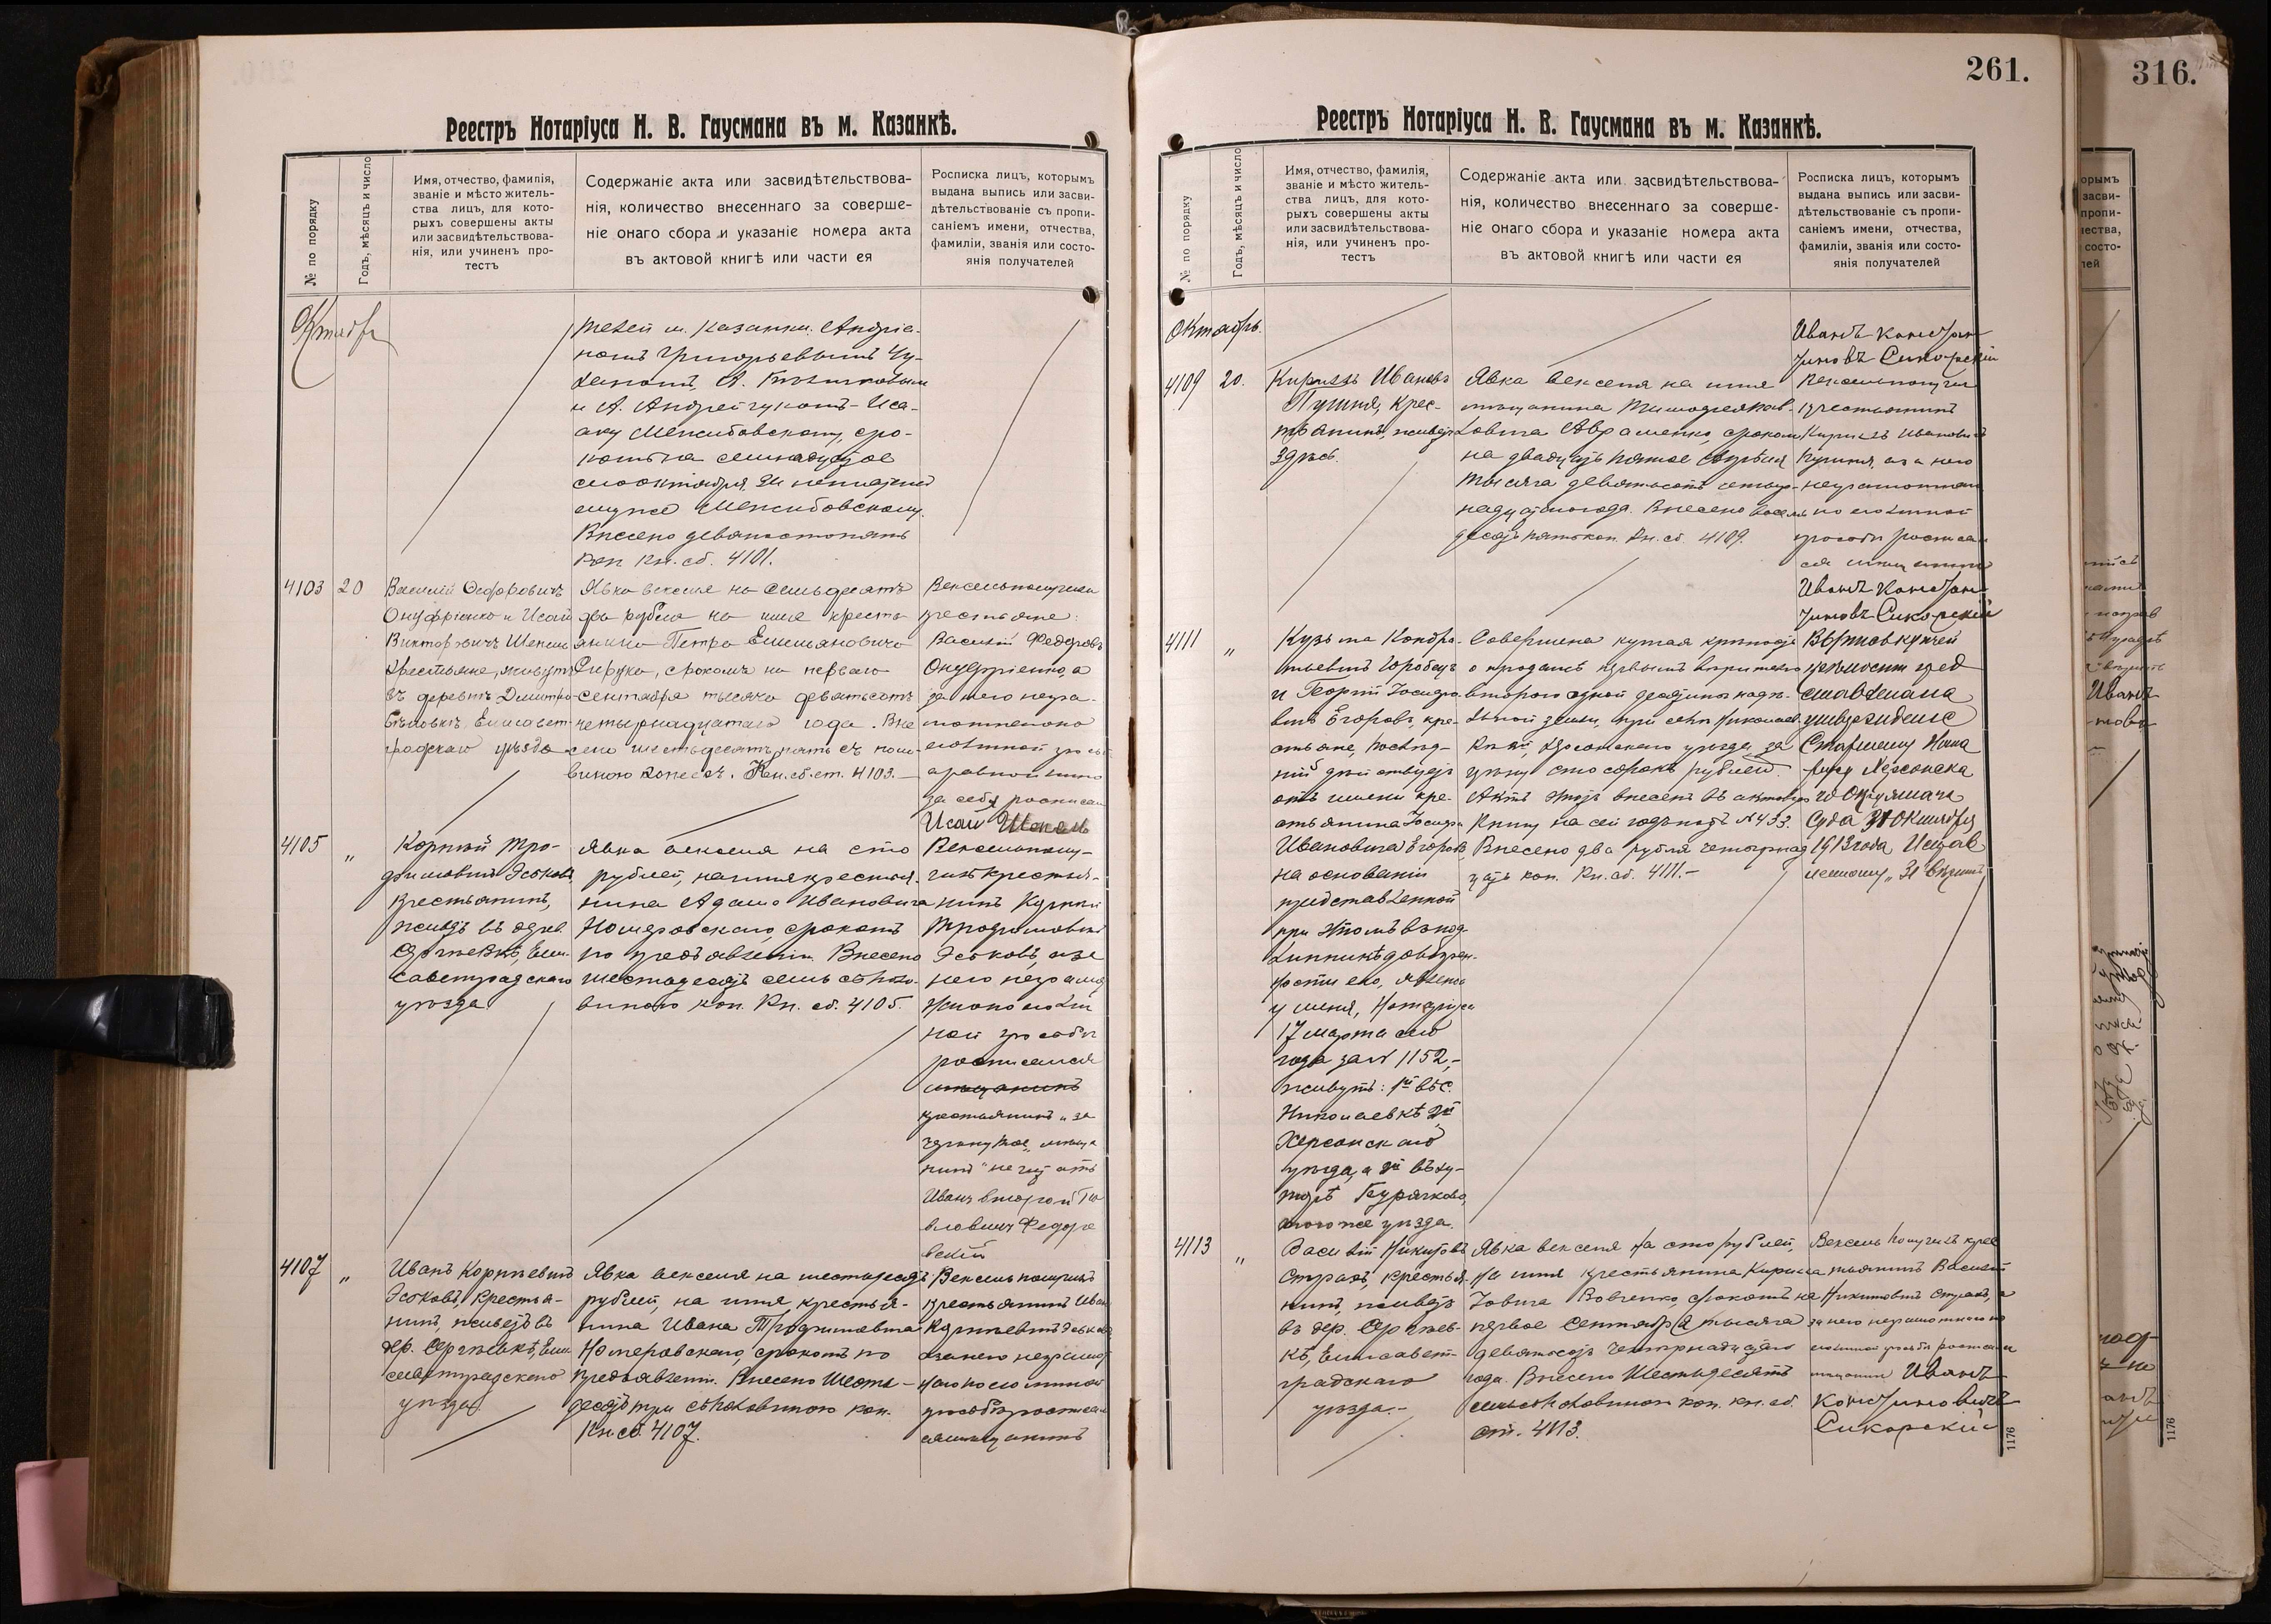 Реестръ Нотаріуса Н. В. Гаусмана въ м. Казанкѣ.
№ по порядку
Годъ, мѣсяцъ и число
Имя, отчество, фамилія,
званіе и мѣсто житель-
ства лицъ, для кото-
рыхъ совершены акты
или засвидѣтельствова-
нія, или учиненъ про-
тестъ
Содержаніе акта или засвидѣтельствова-
нія, количество внесеннаго за соверше-
ніе онаго сбора и указаніе номера акта
въ актовой книгѣ или части ея
Росписка лицъ, которымъ
выдана выпись или засви-
дѣтельствованіе съ пропи-
саніемъ имени, отчества,
фамиліи, званія или состо-
янія получателей
Октябрь
телей м. Казанки: Андріа-
номъ Григорьевымъ Чу-
и А. Андрейчукомъ - Иса-
аку Межибовскому, сро-
комъ на семнадцатое
сего октября
ему же Межибовскому.
Внесено девяносто пять
коп Кн. сб. 4101.
4103 20
Василій Федоровичъ
Онуфріенко и Исай
Викторовичъ Шепель
крестьяне, живутъ
въ деревнѣ Дмитро-
Елисавет-
градскаго уѣзда
Явка векселя на семьдесятъ
два рубля на имя кресть-
янина Петра Емельяновича
срокомъ на перваго
сентября тысяча девятьсотъ
четырнадцатаго года. Вне-
сено шестьдесятъ пять съ поло-
виною копеекъ. Кн. сб. ст. 4103.-
Вексель получили
крестьяне:
Василій Федоровъ
Онуфріенко, а
за него негра-
мотнаго по
его личной прось
за себя росписался
Исай Шепель
4105 „
Корній Тро-
фимовичъ Эсковъ,
крестьянинъ,
живетъ въ дерев.
Сергѣевкѣ, Ели-
саветградскаго
уѣзда
Явка векселя на сто
рублей, на имя крестья-
нина Адама Ивановича
Номеровскаго, срокомъ
по предъявленіи. Внесено
шестьдесятъ семь съ поло-
виною коп. Кн. сб. 4105.
Вексель полу-
чилъ крестья-
нинъ Корній
Трофимовичъ
Эсковъ, а за
него неграмот-
наго по его лич
ной просьбѣ
росписался
мѣщанинъ
крестьянинъ „за
черкнутое „мѣща
нинъ" не читать
Иванъ второй Па
вловичъ Федоро
вскій
4107 „
Иванъ Корнѣевичъ
Эсковъ, крестья-
нинъ, живетъ въ
др. Сергѣевкѣ, Ели
саветградскаго
уѣзда
Явка векселя на шестьдесятъ
рублей, на имя крестья-
нина Ивана Трофимовича
Номеровскаго, срокомъ по
предъявленіи. Внесено шесть-
десятъ три съ половиною коп.
Кн. сб. 4107.
Вексель получилъ
крестьянинъ Иван
Корнѣевичъ Эсковъ
а за него неграмот
наго по его личной
просьбѣ росписал
ся мѣщанинъ
261.
Реестръ Нотаріуса Н. В. Гаусмана въ м. Казанкѣ.
№ по порядку
Годъ, мѣсяцъ и число
Имя, отчество, фамилія,
званіе и мѣсто житель-
ства лицъ, для кото-
рыхъ совершены акты
или засвидѣтельствова-
нія, или учиненъ про-
тестъ
Содержаніе акта или засвидѣтельствова-
нія, количество внесеннаго за соверше-
ніе онаго сбора и указаніе номера акта
въ актовой книгѣ или части ея
Росписка лицъ, которымъ
выдана выпись или засви-
дѣтельствованіе съ пропи-
саніемъ имени, отчества,
фамиліи, званія или состо-
янія получателей
Октябрь.
Иванъ Констан
тиновъ Сикорскій
4109 20.
Кириллъ Ивановъ
крес-
тьянинъ, живетъ
здѣсь.
Явка векселя на имя
мѣщанина Тимофея Пав-
ловича Авраменко, срокомъ
на двадцать пятое
тысяча девятьсотъ четыр-
надцатаго года. Внесено восемь
десятъ пять коп. Кн. сб. 4109.
Вексель получилъ
крестьянинъ
Кириллъ Ивановичъ
а за него
неграмотнаго
по его личной
просьбѣ росписал
ся мѣщанинъ
Иванъ Констан
тиновъ Сикорскій
4111 „
Кузьма Кондра-
тьевичъ Горобецъ
и Георгій Іосифо-
вичъ Егоровъ, кре-
стьяне, послѣд-
ній дѣйствуетъ
отъ имени кре-
стьянина Іосифа
Ивановича Егорова,
на основаніи
представленной
при этомъ въ под-
линникѣ довѣрен-
ности его, явленной
у меня, Нотаріуса
17 марта сего
года за № 1152,-
живутъ: 1й въ с.
Николаевкѣ 2й
Херсонскаго
уѣзда, а 2й въ ху-
торѣ Бурячково,
того же уѣзда.
Совершена купчая крѣпость
о продажѣ первымъ
второго одной десятины надѣ-
льной земли, при селѣ Николаев-
кѣ 2й, Херсонскаго уѣзда, за
цѣну сто сорокъ рублей.
Актъ этотъ внесенъ въ актовую
книгу на сей годъ подъ № 433.
Внесено два рубля четырнад
цать коп. Кн. сб. 4111.-
Выпись купчей
крѣпости пред
ставлена
Старшему Нота
ріусу Херсонска
го Окружнаго
Суда 31 Октября
1913 года
4113 „
Василій Никитовъ
Страхъ, крестья-
нинъ, живетъ
въ дер. Сергѣев-
кѣ, Елисавет-
градскаго
уѣзда.-
Явка векселя на сто рублей,
на имя крестьянина Кирилла
Іовича Вовченко, срокомъ на
первое Сентября тысяча
девятьсотъ четырнадцатаго
года. Внесено шестьдесятъ
семь съ половиною коп. кн. сб.
ст. 4113.
Вексель получилъ крес
тьянинъ Василій
Никитовичъ Страхъ, а
за него неграмотнаго по
его личной просьбѣ росписался
мѣщанинъ Иванъ
Константиновичъ
Сикорскій
1176
316.
орымъ
засви-
пропи-
чества,
состо-
лей
Иванъ
1176